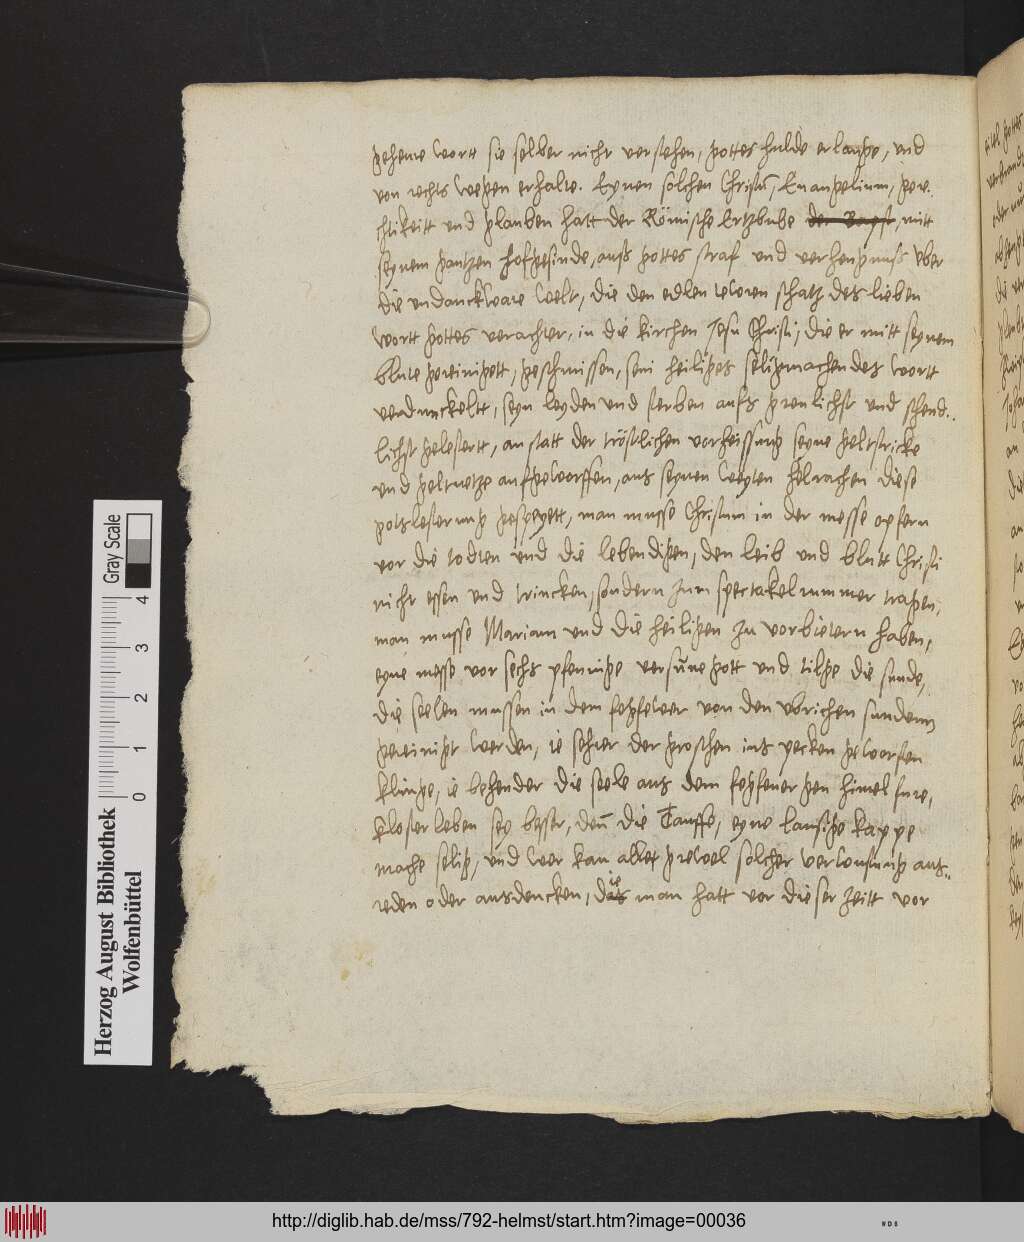 geheure wortt sie selber nicht verstehen, gottes hulde erlange, und
von rechts wegen erhalte. Eynen solchen Christū, Euangelium, gere.
chtikeitt und glauben hatt der Römische Ertzbube der Bapst, mitt
seynem gantzen hofgesinde, auß gottes straf und verhengnuß uber
die undanckbare welt, die den edlen tewren schatz des lieben
wortt gottes verachtet, in die kirchen Jesu Christi, die er mitt seynem
blute gereinigett, geschmissen, sein heiliges seligmachendes wortt
verdunckeltt, seyn leyden und sterben aufs greulichst und schend..
lichst gelestertt, an statt der tröstlichen vorheissung seyne geltstricke
und geltnetze aufgeworffen, aus seynen weyten helrachen diese
gotslesterung gespeyett, man musse Christum in der messe opfern
vor die todten und die lebendigen, den leib und blutt Christi
nicht essen und trincken, sondern zum spectakel ummer tragen,
man musse Mariam und die heiligen zu vorbietern haben,
eyne messe vor sechs pfennige versüne gott und tilge die sunde,
die seelen mussen in dem fegfewer von den ubrichen sundenn
gereinigt werden, ie sehrer der groschen ins becken geworfen
klinge, ie behender die seele aus dem fegfeuer gen himel fure,
kloster leben sey besser, deñ die Tauffe, eyne lausige kappe
mache selig, und wer kan allet grewel solcher verwustung aus..
reden oder ausdencken, die man hatt vor dieser zeitt vor
Herzog August Bibliothek
Wolfenbüttel
Gray Scale
0 1 2 3 4
http://diglib.hab.de/mss/792-helmst/start.htm?image=00036